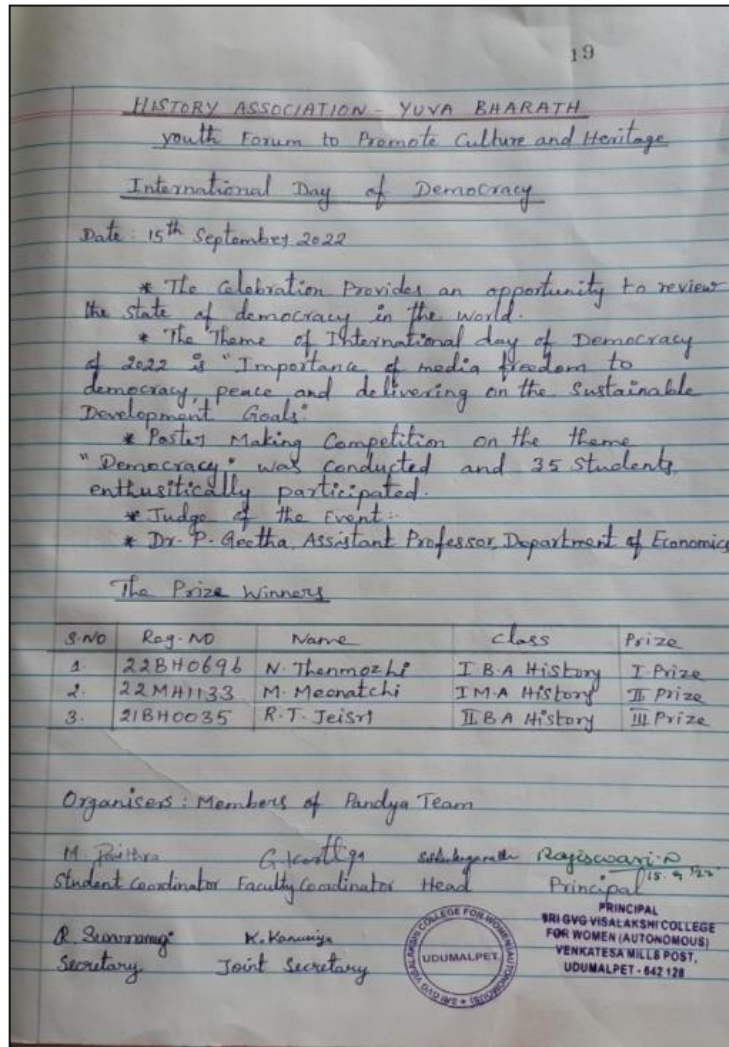 19
HISTORY ASSOCIATION - YUVA BHARATH
youth Forum to Promote Culture and Heritage
International Day of Democracy
Date : 15th September 2022
* The Celebration Provides an opportunity to review
the state of democracy in the world.
* The Theme of International day of Democracy
of 2022 is "Importance of media freedom to
democracy, peace and delivering on the Sustainable
Development Goals".
* Poster Making Competition on the theme
"Democracy" was conducted and 35 Students
enthusitically participated.
* Judge of the Event :-
* Dr. P. Geetha, Assistant Professor, Department of Economics
The Prize Winners
S.NO Reg-NO Name class Prize
1. 22BH0696 N. Thenmozhi I B.A History I Prize
2. 22MH1133 M. Meenatchi I M.A History II Prize
3. 21BH0035 R.T. Jeisri II B A History III Prize
Organisers : Members of Pandya Team
M. Pavithra Rajiswari.P
15.9.22
Student Coordinator Faculty Coordinator Head Principal
PRINCIPAL
SRI GVG VISALAKSHI COLLEGE
FOR WOMEN (AUTONOMOUS)
VENKATESA MILLS POST,
UDUMALPET - 642 128
K. Kanusiya
Secretary Joint Secretary
SRI GVG VISALAKSHI COLLEGE FOR WOMEN (AUTONOMOUS)
UDUMALPET.